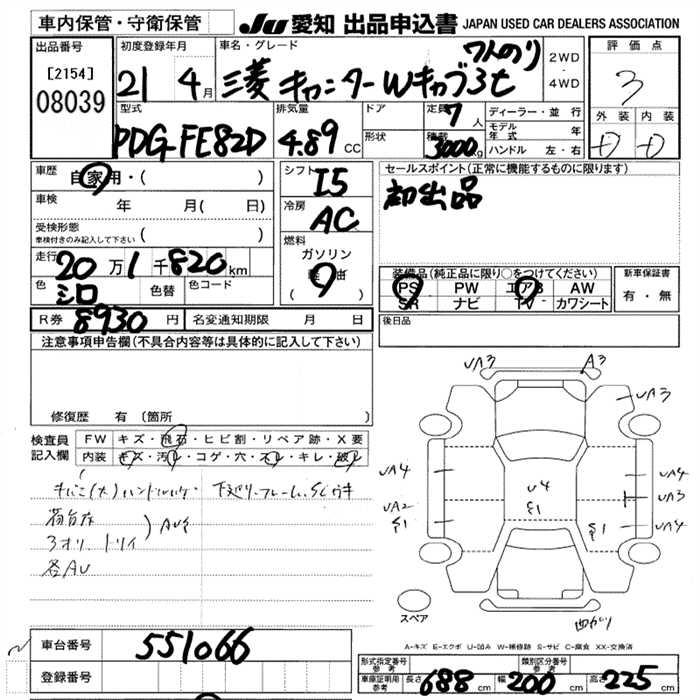 車内保管・守衛保管 Ju 愛知 出品申込書 JAPAN USED CAR DEALERS ASSOCIATION
出品番号 初度登録年月 車名・グレード 7人のり 2WD・4WD 評価点
[2154] 08039 21 4月 三菱 キャンター Wキャブ3t 3
型式 排気量 ドア 定員 7人 ディーラー・並行 外装 内装
PDG-FE82D 4.89CC 形状 積載 3000kg モデル年式 年 D D
ハンドル 左・右
車歴 自家用・( ) シフト I5 セールスポイント(正常に機能するものに限ります)
車検 年 月( 日) 冷房 AC 初出品
受検形態 ( )
車検付きのみ記入して下さい
燃料
走行 20万1千820km ガソリン 軽油 ( ) 装備品(純正品に限り○をつけてください) 新車保証書
色 シロ 色替 色コード PS PW エアB AW 有・無
SR ナビ TV カワシート
R券 8930円 名変通知期限 月 日 後日品
注意事項申告欄(不具合内容等は具体的に記入して下さい)
修復歴 有(箇所
検査員記入欄 FW キズ・飛石・ヒビ割・リペア跡・X要
内装 キズ・汚れ・コゲ・穴・スレ・キレ・破れ
下廻り・フレーム、SCウキ
荷台 AUS
3オリ、トリイ
各AU
UA3 A3
UA3
UA4 U4 UA4
UA3
UA2 S1
S1 S1 UA4
スペア 曲がり
A-キズ E-エクボ U-凹み W-補修跡 S-サビ C-腐食 XX-交換済
車台番号 551066
登録番号
型式指定番号 参考 類別区分番号 参考
車庫証明用 参考 長さ 688cm 幅 200cm 高さ 225cm